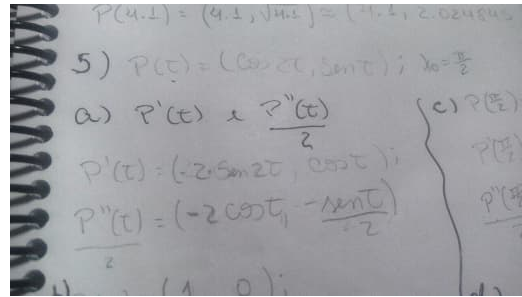 P(4.1) = (4.1, √4.1) = (4.1, 2.024845
5) P(t) = (cos 2t, sen t); t₀ = π/2
a) P'(t) e P''(t)/2
P'(t) = (-2·sen 2t, cos t);
P''(t)/2 = (-2 cos t, -sen t/2)
c) P(π/2)
P'(π/2)
P''(π/2)
(1, 0);